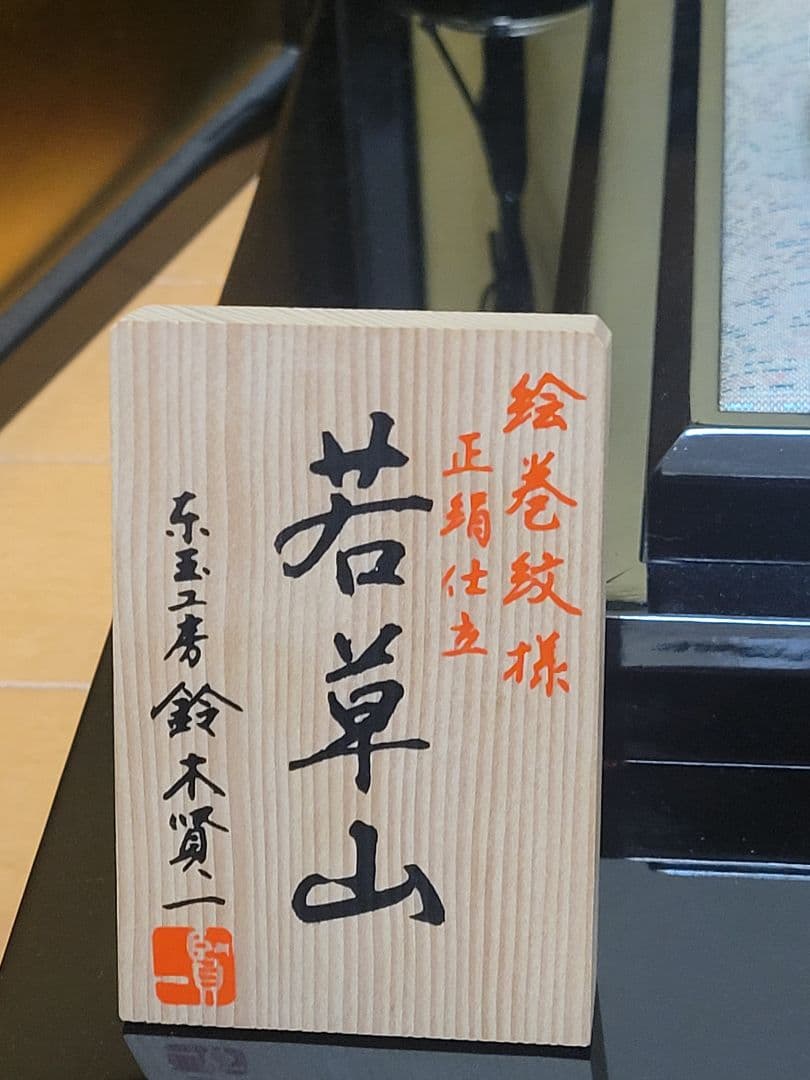 絵巻紋様
正絹仕立
若草山
东玉工房 鈴木賢一
賢一